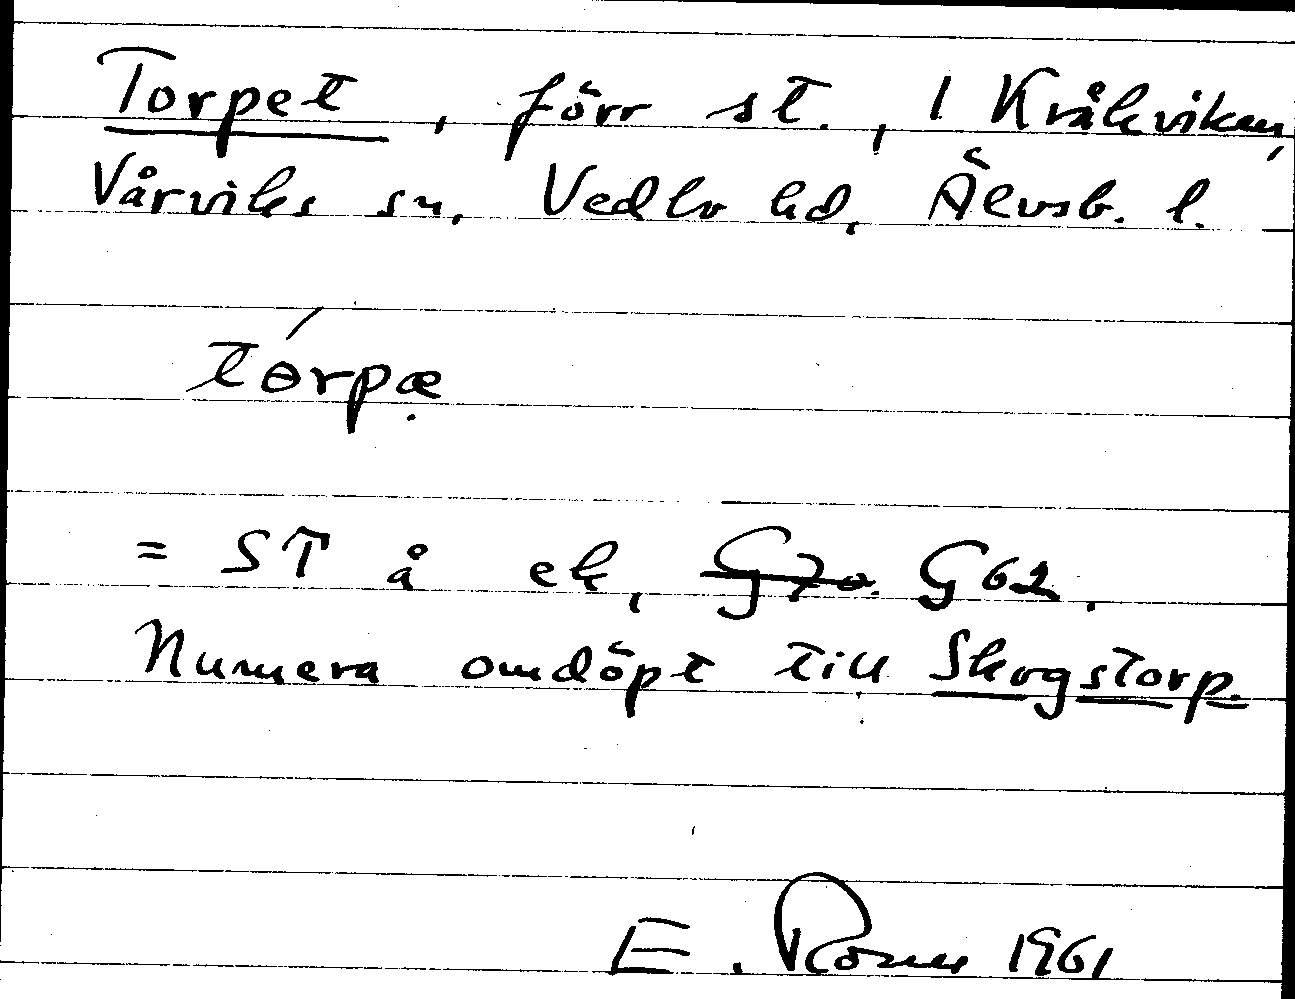 Torpet, förr st., 1 Kråkviken,
Vårviks sn, Vedbo hd, Älvsb. l.
tɵ́rpæ̣
= ST å ek, G70. G62.
Numera omdöpt till Skogstorp.
E. 1961